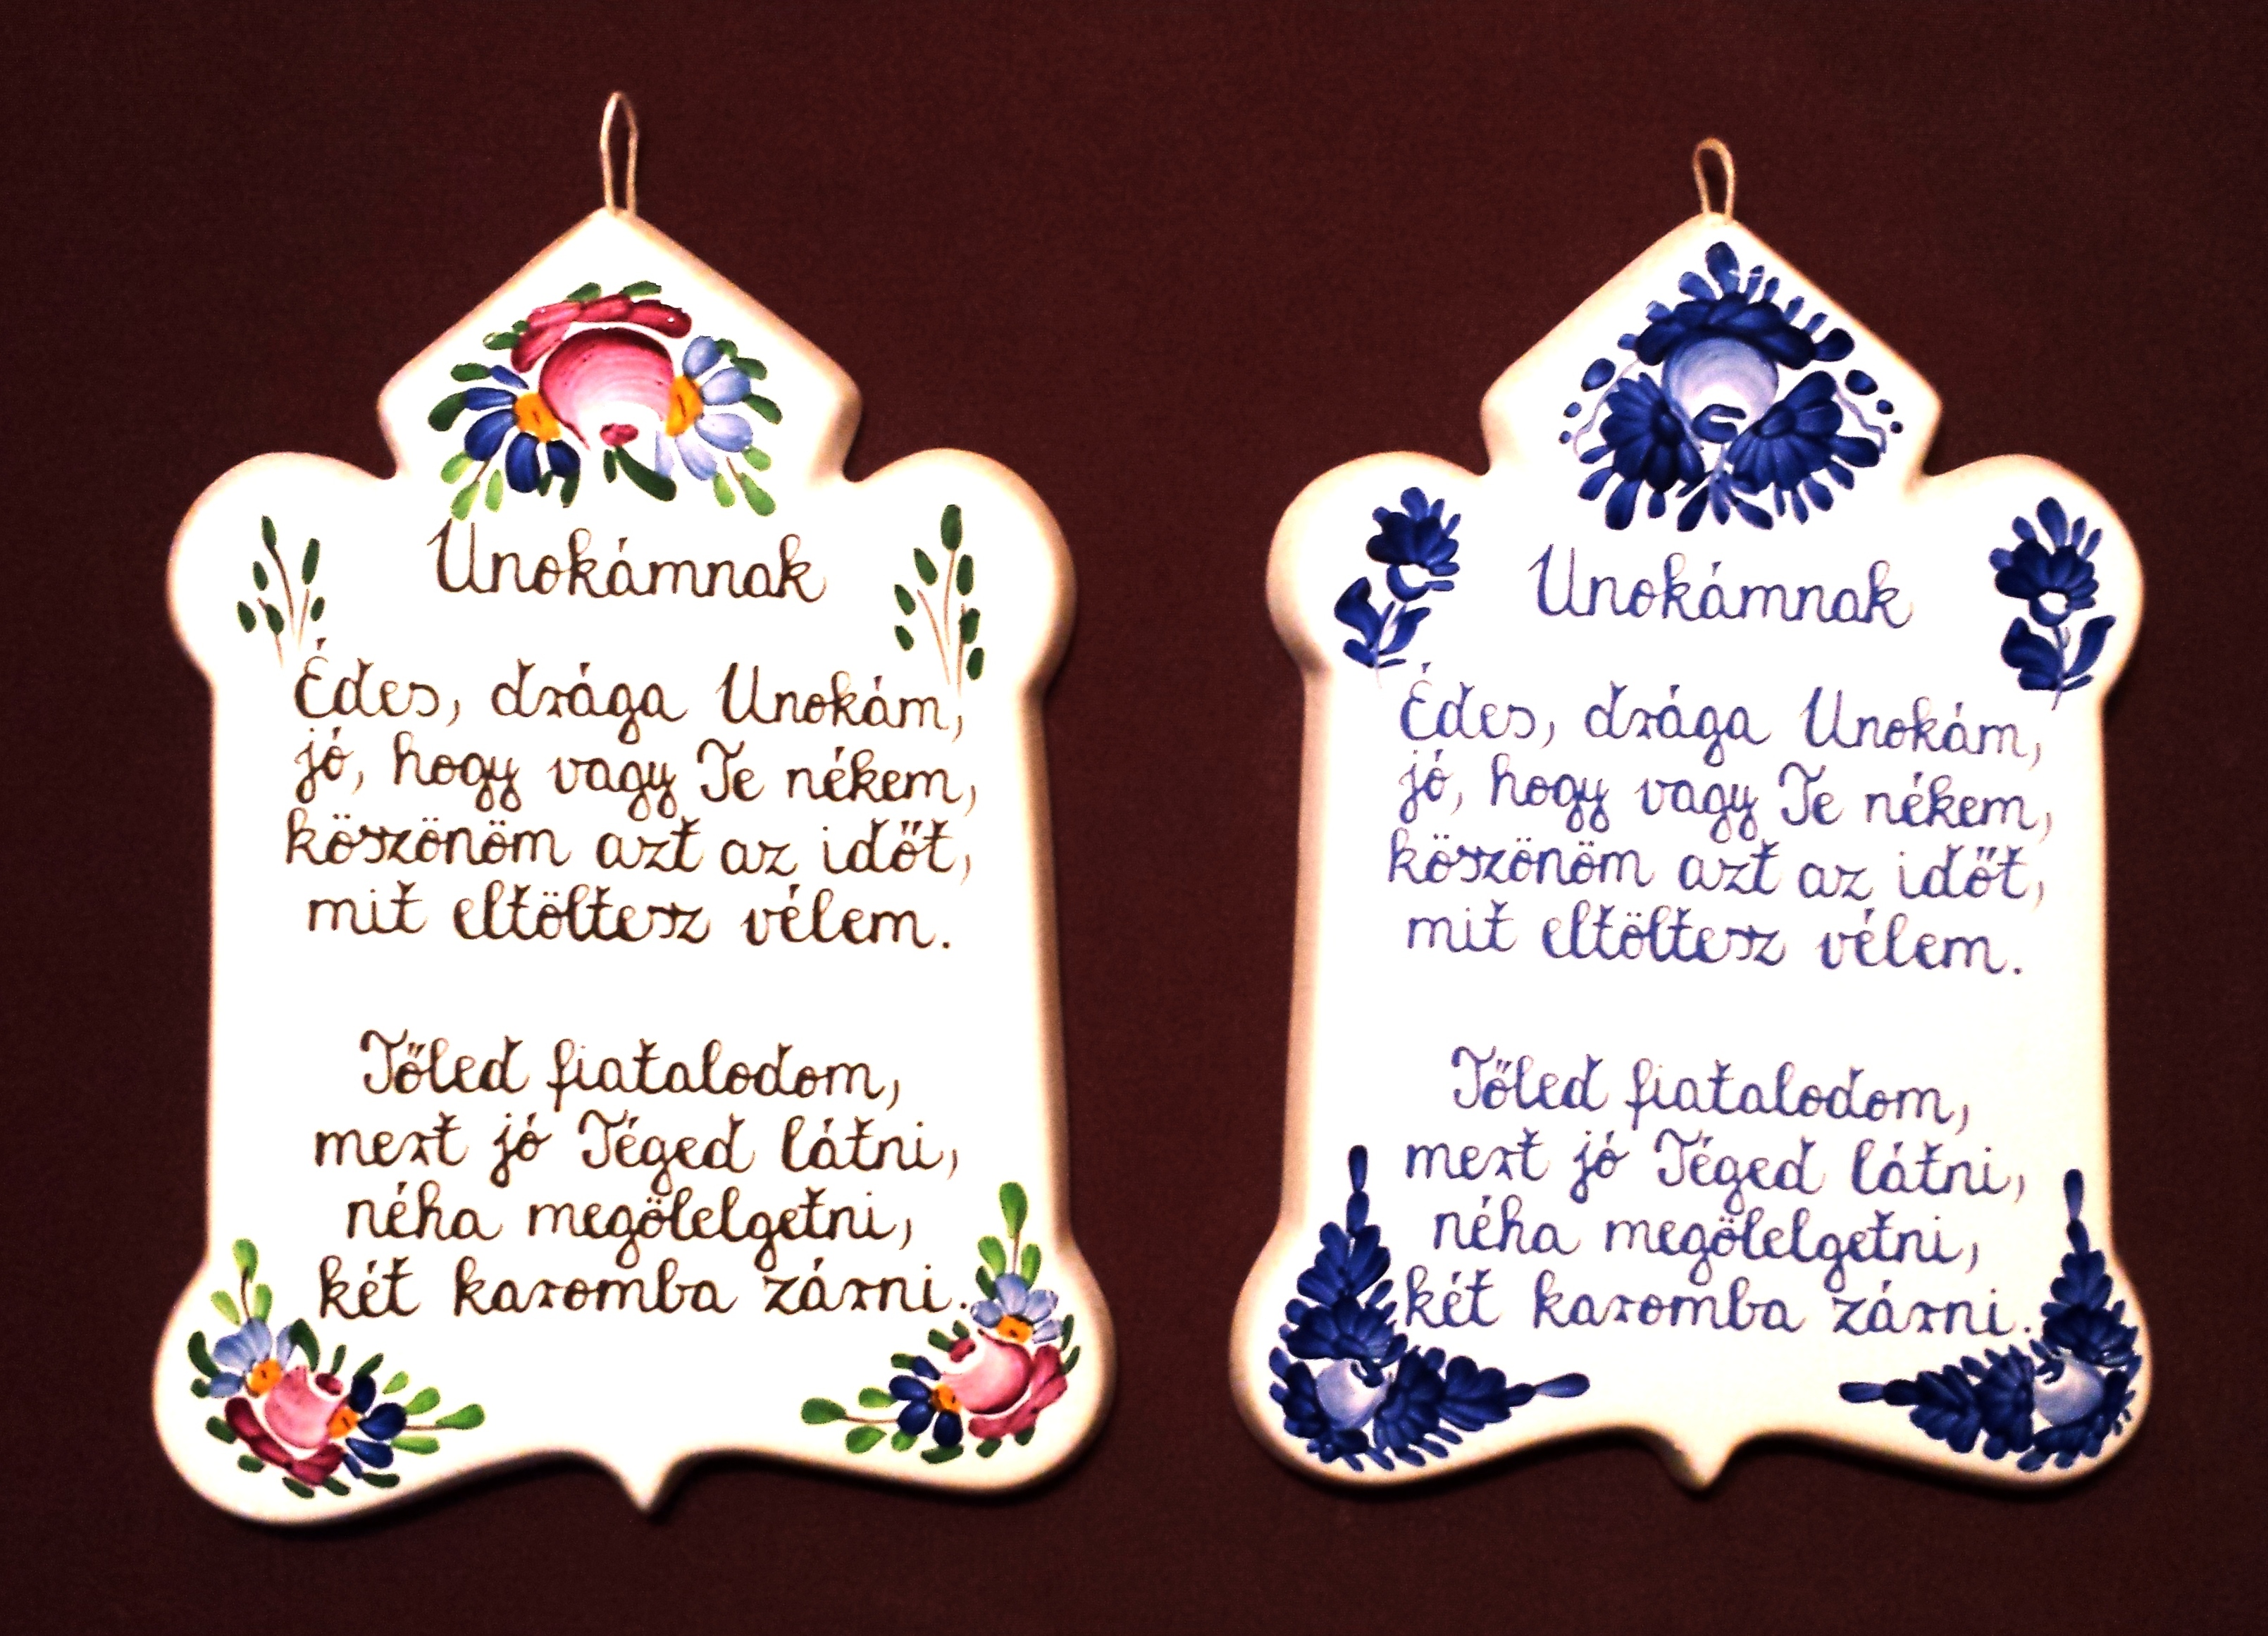 Unokámnak
Édes, drága Unokám,
jó, hogy vagy Te nékem,
köszönöm azt az időt,
mit eltöltesz vélem.
Tőled fiatalodom,
mert jó Téged látni,
néha megölelgetni,
két karomba zárni.
Unokámnak
Édes, drága Unokám,
jó, hogy vagy Te nékem,
köszönöm azt az időt,
mit eltöltesz vélem.
Tőled fiatalodom,
mert jó Téged látni,
néha megölelgetni,
két karomba zárni.